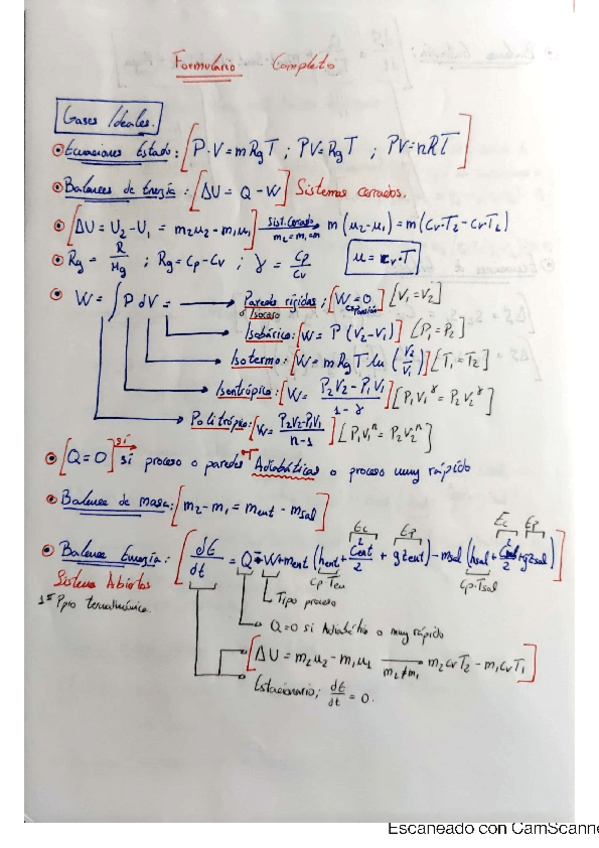 Formulario Completo
Gases Ideales.
Ecuaciones Estado: [P·V = m Rg T ; PV = Rg T ; PV = nRT]
Balances de Energía: [ΔU = Q - W] Sistemas cerrados.
[ΔU = U₂ - U₁ = m₂u₂ - m₁u₁] Sist. Cerrado m₂=m₁=m m(u₂-u₁) = m(Cv·T₂ - Cv·T₁)
Rg = R/Mg ; Rg = Cp - Cv ; γ = Cp/Cv u = cv·T
W = ∫ P dV = Paredes rígidas ; [W = 0] [V₁ = V₂]
o Isocoro expansión
Isobárico: [W = P (V₂-V₁)] [P₁ = P₂]
Isotermo: [W = m Rg T · ln (V₂/V₁)] [T₁ = T₂]
Isentrópico: [W = P₂V₂ - P₁V₁ / 1-γ] [P₁V₁^γ = P₂V₂^γ]
Politrópico: [W = P₂V₂-P₁V₁ / n-1] [P₁V₁ⁿ = P₂V₂ⁿ]
[Q = 0] si si proceso o paredes Adiabáticas o proceso muy rápido
Balance de masa: [m₂ - m₁ = ment - msal]
Ec Ep Ec Ep
Balance Energía: [dE/dt = Q - W + ment (hent + Cent²/2 + gzent) - msal (hsal + Csal²/2 + gzsal)]
Sistema Abiertos Cp·Tsal
1er Ppio termodinámica. Tipo proceso
Q=0 si Adiabático o muy rápido
[ΔU = m₂u₂ - m₁u₁ m₂≠m₁ m₂cvT₂ - m₁cvT₁]
Estacionario; dE/dt = 0.
Escaneado con CamScanne